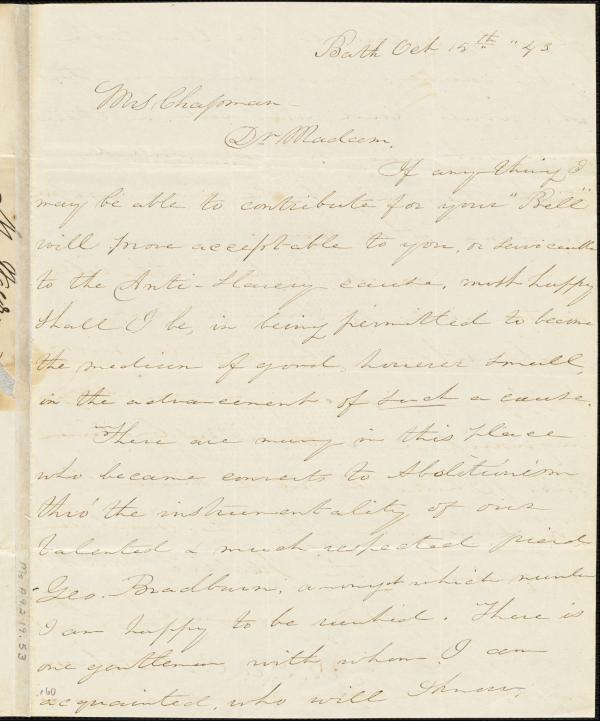 Bath Oct 15th "43
Mrs Chapman
Dr Madam,
If any thing I
may be able to contribute for your "Bell"
will prove acceptable to you, or serviceable
to the Anti-Slavery cause, most happy
shall I be, in being permitted to become
the medium of good, however small,
in the advancement of such a cause.
There are many in this place
who became converts to Abolitionism
thro' the instrumentality of our
talented & much respected friend
Geo. Bradburn, amongst which number
I am happy to be numbered. There is
one gentleman with whom I am
acquainted, who will
Ms. A.9.2.19.53
160